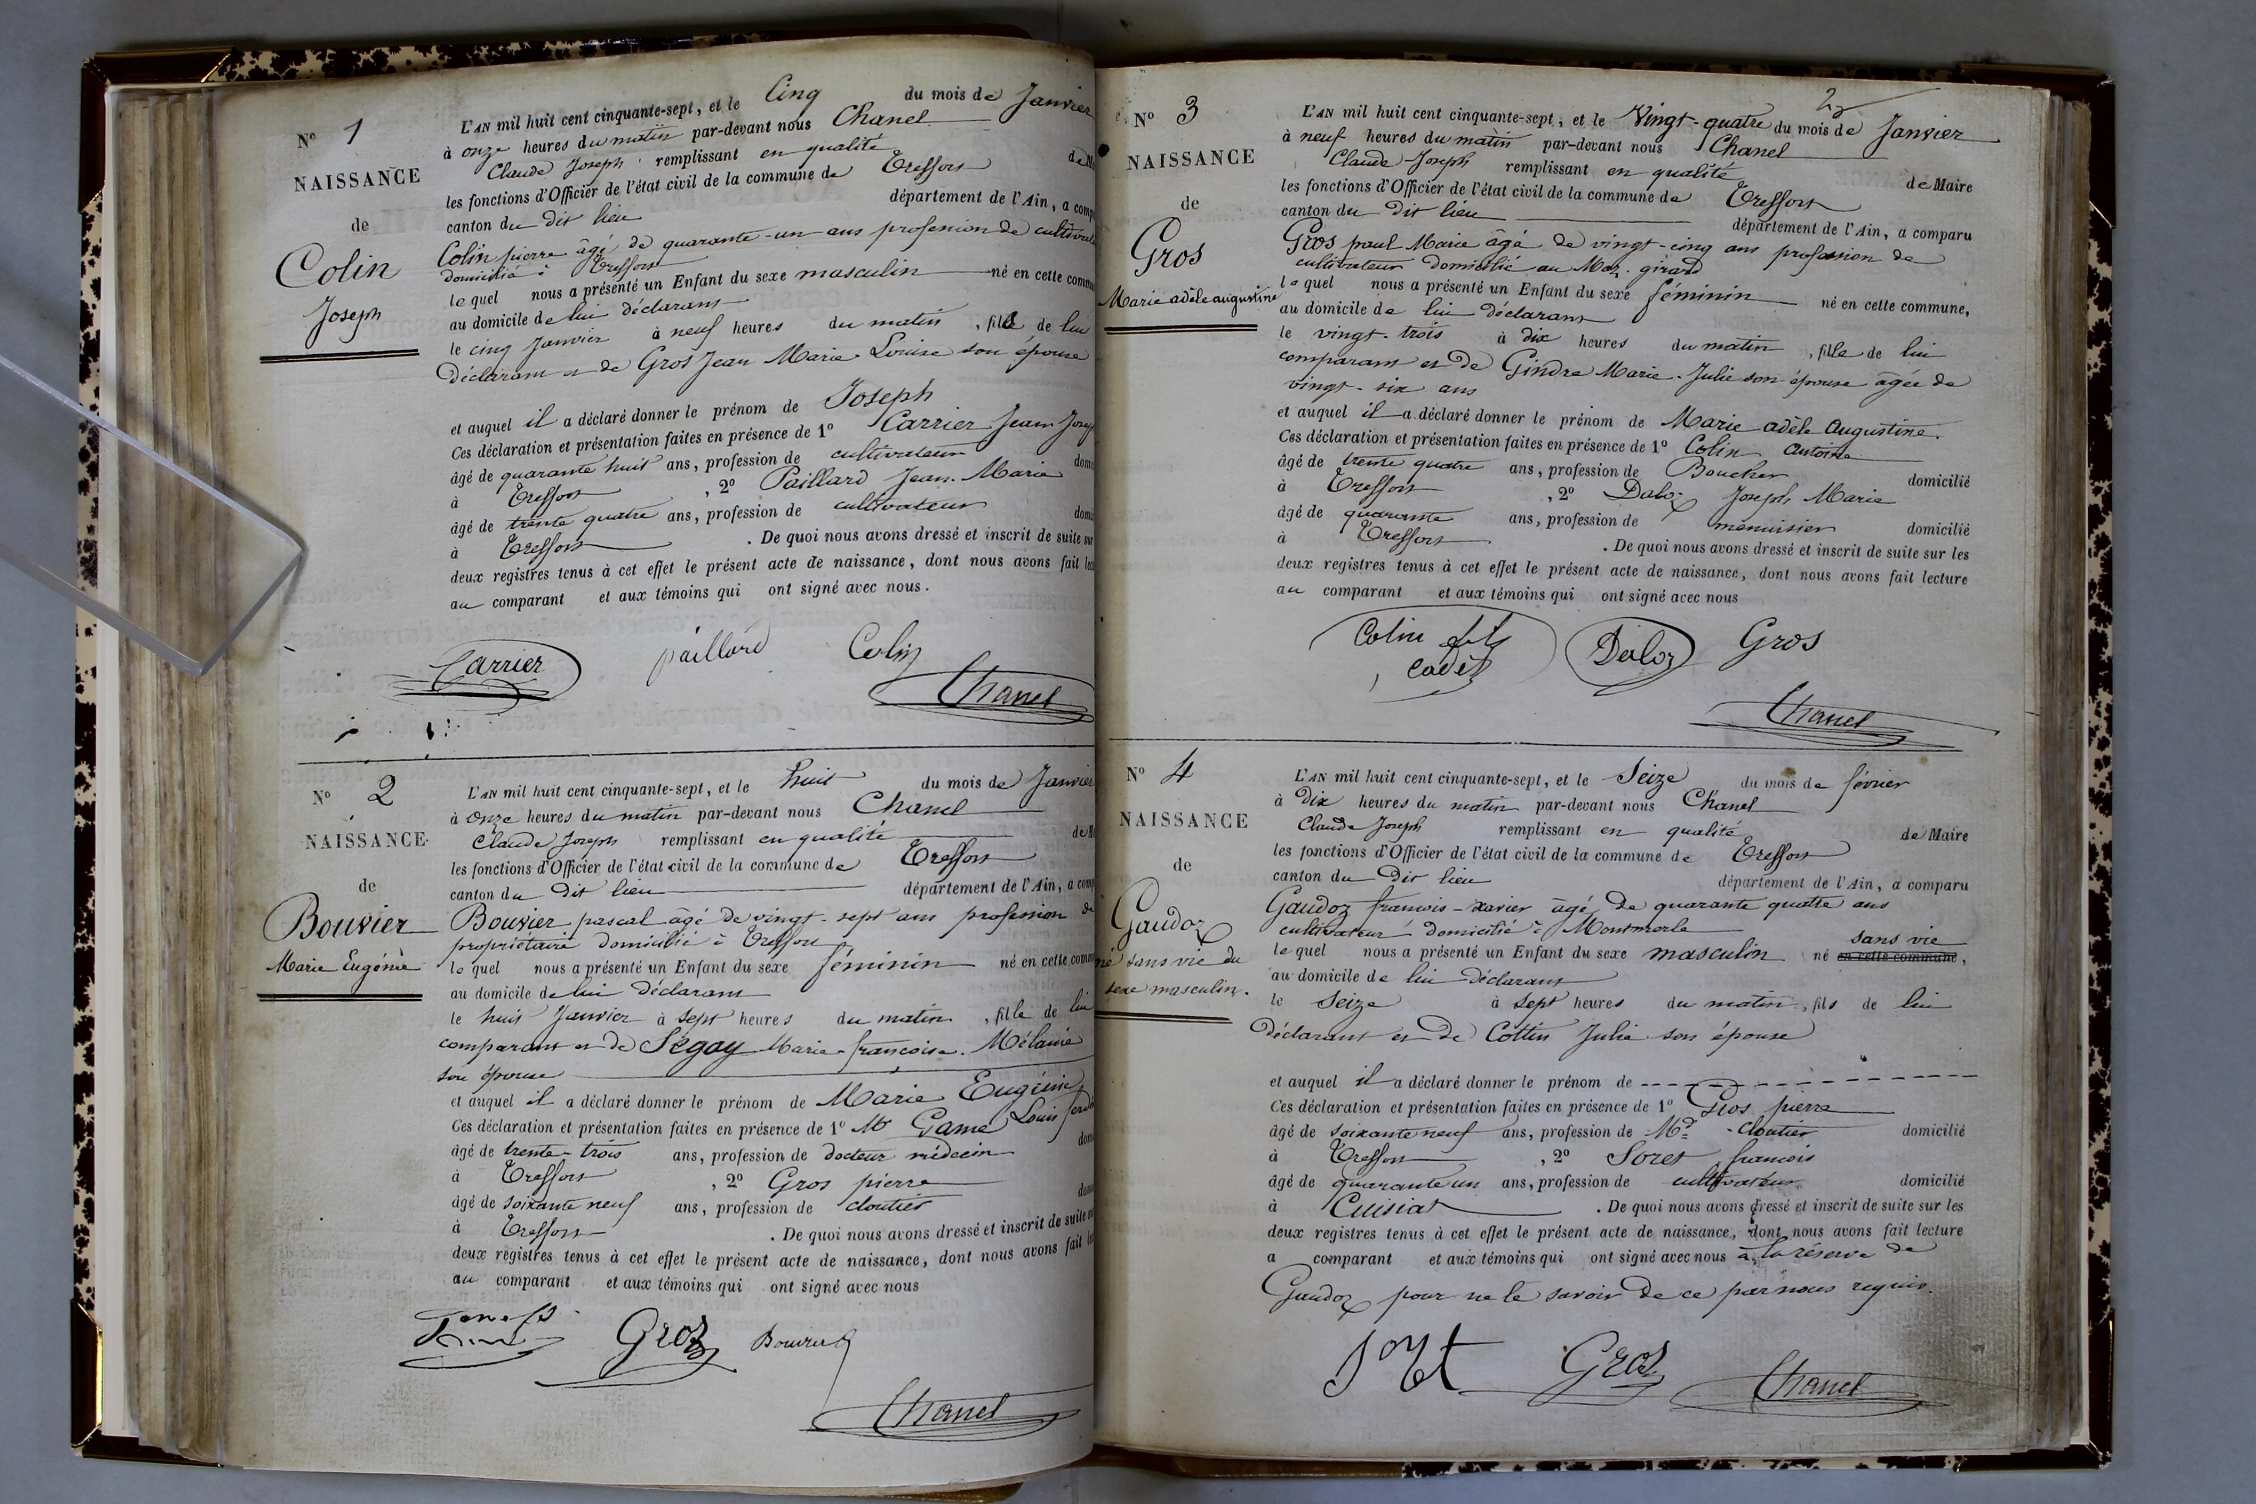 N° 1
NAISSANCE
de
Colin
Joseph
L'AN mil huit cent cinquante-sept, et le Cinq du mois de Janvier
à onze heures du matin par-devant nous Chanel
Claude Joseph remplissant en qualité de
les fonctions d'Officier de l'état civil de la commune de Treffort
canton du dit lieu département de l'Ain, a comp
Colin pierre âgé de quarante-un ans profession de cultivat
domicilié à Treffort
lequel nous a présenté un Enfant du sexe masculin né en cette comm
au domicile de lui déclarant
le cinq Janvier à neuf heures du matin, fils de lui
Déclarant et de Gros Jean Marie-Louise son épouse
et auquel il a déclaré donner le prénom de Joseph
Ces déclaration et présentation faites en présence de 1° Carrier Jean Josep
âgé de quarante huit ans, profession de cultivateur dom
à Treffort, 2° Paillard Jean-Marie
âgé de trente quatre ans, profession de cultivateur domi
à Treffort. De quoi nous avons dressé et inscrit de suite sur
deux registres tenus à cet effet le présent acte de naissance, dont nous avons fait lec
au comparant et aux témoins qui ont signé avec nous.
Carrier paillard Colin
Chanel
N° 2
NAISSANCE
de
Bouvier
Marie Eugénie
L'AN mil huit cent cinquante-sept, et le huit du mois de Janvier
à onze heures du matin par-devant nous Chanel
Claude Joseph remplissant en qualité de M
les fonctions d'Officier de l'état civil de la commune de Treffort
canton du dit lieu département de l'Ain, a comp
Bouvier pascal âgé de vingt-sept ans profession de
propriétaire domicilié à Treffort
lequel nous a présenté un Enfant du sexe féminin né en cette comm
au domicile de lui déclarant
le huit Janvier à sept heures du matin, fille de lui
comparant et de Ségoy Marie-françoise-Mélanie
son épouse
et auquel il a déclaré donner le prénom de Marie Eugénie
Ces déclaration et présentation faites en présence de 1° Mr Game Louis ferdi
âgé de trente-trois ans, profession de docteur médecin dom
à Treffort, 2° Gros pierre
âgé de soixante neuf ans, profession de cloutier dom
à Treffort. De quoi nous avons dressé et inscrit de suite su
deux registres tenus à cet effet le présent acte de naissance, dont nous avons fait lec
au comparant et aux témoins qui ont signé avec nous
Groz Bouvier
Chanel
2
N° 3
NAISSANCE
de
Gros
Marie adèle augustine
L'AN mil huit cent cinquante-sept, et le Vingt-quatre du mois de Janvier
à neuf heures du matin par-devant nous Chanel
Claude Joseph remplissant en qualité de Maire
les fonctions d'Officier de l'état civil de la commune de Treffort
canton du dit lieu département de l'Ain, a comparu
Gros paul Marie âgé de vingt-cinq ans profession de
cultivateur domicilié au Maz. girard
lequel nous a présenté un Enfant du sexe féminin né en cette commune,
au domicile de lui déclarant
le vingt-trois à dix heures du matin, fille de lui
comparant et de Gindre Marie-Julie son épouse âgée de
vingt-six ans
et auquel il a déclaré donner le prénom de Marie adèle Augustine.
Ces déclaration et présentation faites en présence de 1° Colin Antoine
âgé de trente quatre ans, profession de Boucher domicilié
à Treffort, 2° Daloz Joseph Marie
âgé de quarante ans, profession de menuisier domicilié
à Treffort. De quoi nous avons dressé et inscrit de suite sur les
deux registres tenus à cet effet le présent acte de naissance, dont nous avons fait lecture
au comparant et aux témoins qui ont signé avec nous
Colin fils Daloz Gros
cadet
Chanel
N° 4
NAISSANCE
de
Gaudoz
né sans vie du
sexe masculin.
L'AN mil huit cent cinquante-sept, et le Seize du mois de février
à dix heures du matin par-devant nous Chanel
Claude Joseph remplissant en qualité de Maire
les fonctions d'Officier de l'état civil de la commune de Treffort
canton du dit lieu département de l'Ain, a comparu
Gaudoz francois-xavier âgé de quarante quatre ans
cultivateur domicilié à Montmerle
sans vie
lequel nous a présenté un Enfant du sexe masculin né en cette commune,
au domicile de lui déclarant
le Seize à sept heures du matin, fils de lui
déclarant et de Cottin Julie son épouse
et auquel il a déclaré donner le prénom de
Ces déclaration et présentation faites en présence de 1° Gros pierre
âgé de soixante neuf ans, profession de Md cloutier domicilié
à Treffort, 2° Soret francois
âgé de quarante un ans, profession de cultivateur domicilié
à Cuisiat. De quoi nous avons dressé et inscrit de suite sur les
deux registres tenus à cet effet le présent acte de naissance, dont nous avons fait lecture
a comparant et aux témoins qui ont signé avec nous à la réserve de
Gaudoz pour ne le savoir de ce par nous requis.
Groz
Chanel